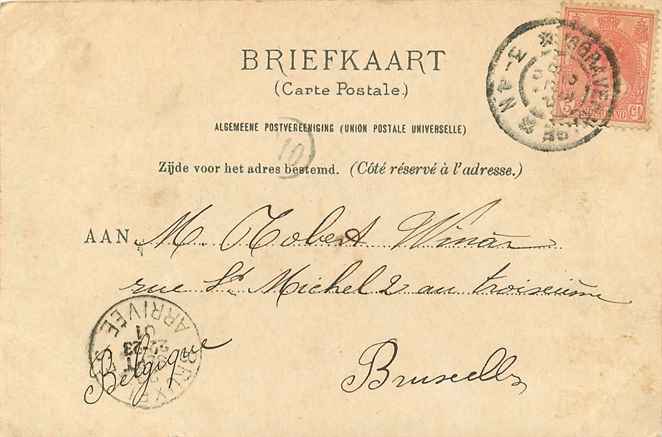 BRIEFKAART
(Carte Postale.)
ALGEMEENE POSTVEREENIGING (UNION POSTALE UNIVERSELLE)
10
Zijde voor het adres bestemd. (Côté réservé à l'adresse.)
AAN M. Robert
rue St Michel 2 au troiseiume
Belgique
Bruxelles
ARRIVÉE